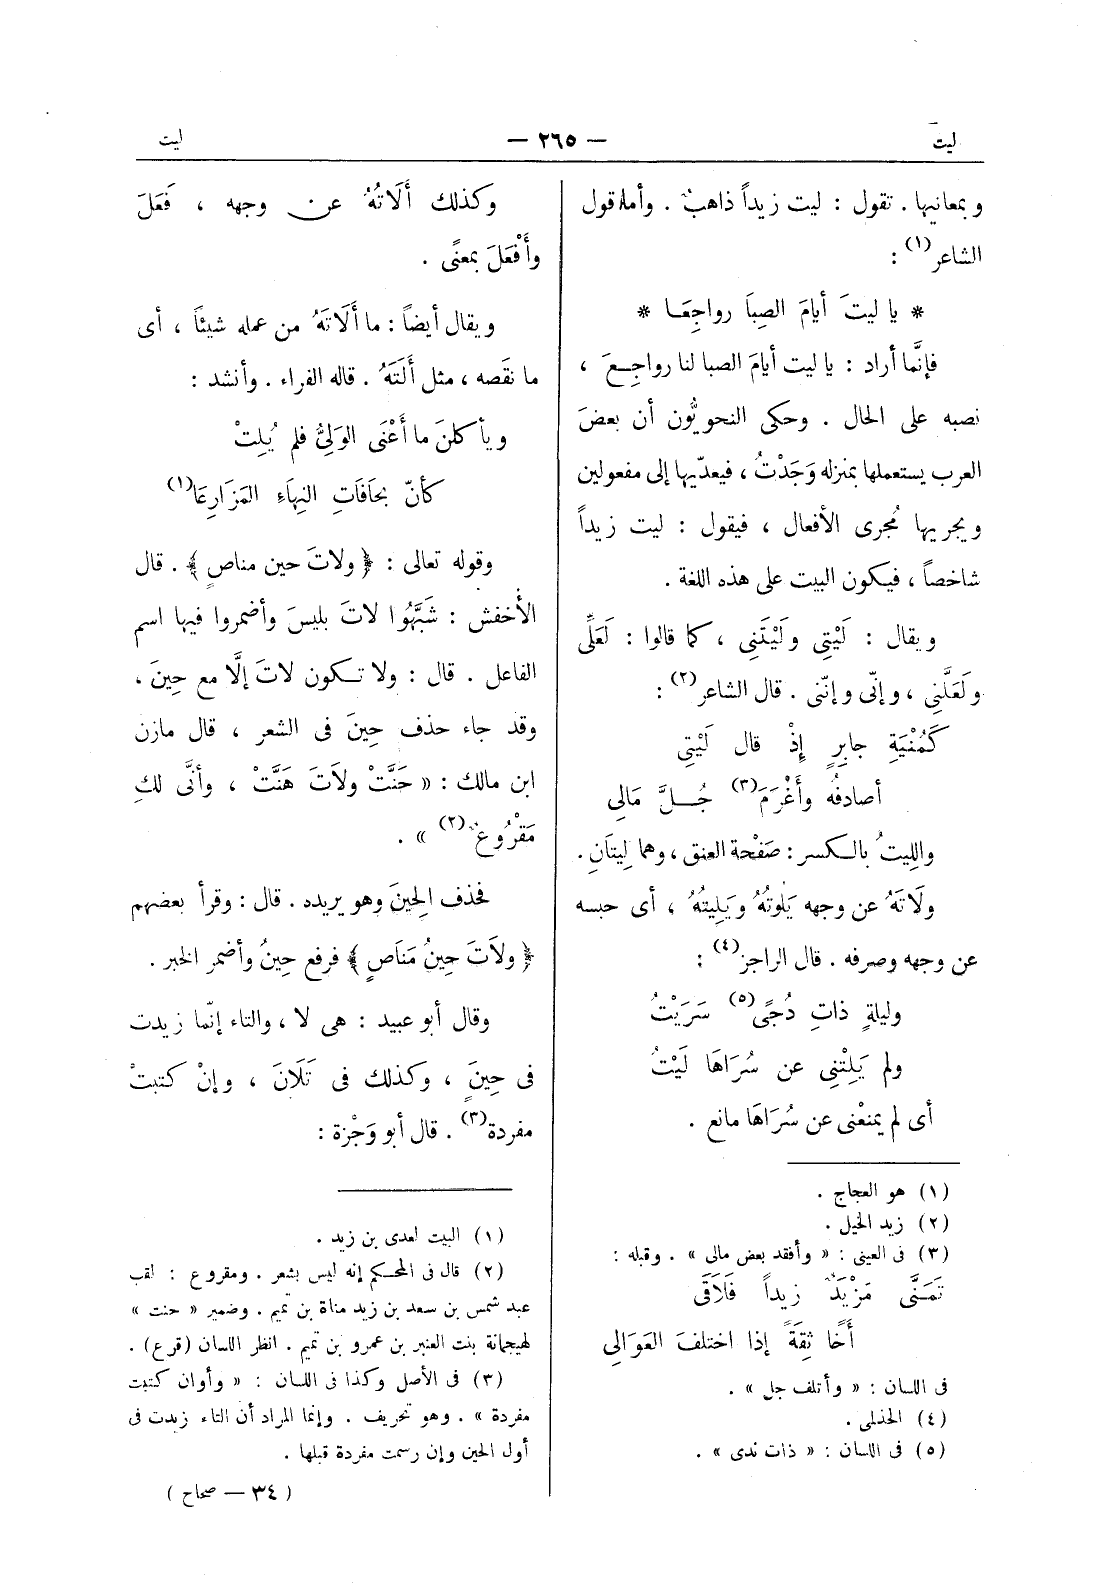 ليت
— ٢٦٥ —
ليت
وبمعانيها . تقول : ليت زيداً ذاهبٌ . وأما قول
الشاعر(١) :
* يا ليتَ أيامَ الصِبَا رواجِعَا *
فإنَّما أراد : يا ليت أيامَ الصبا لنا رواجِعَ ،
نصبه على الحال . وحكى النحويُّون أن بعضَ
العرب يستعملها بمنزله وَجَدْتُ ، فيعدّيها إلى مفعولين
ويجريها مُجرى الأفعال ، فيقول : ليت زيداً
شاخصاً ، فيكون البيت على هذه اللغة .
ويقال : لَيْتِى ولَيْتَنِى ، كما قالوا : لَعَلِّى
ولَعَلَّنِى ، وإنّى وإنّنى . قال الشاعر(٢) :
كَمُنْيَةِ جابِرٍ إِذْ قال لَيْتِى
أصادفُه وأَغْرَمَ(٣) جُلَّ مَالِى
واللِيتُ بالكسر : صَفْحة العنق ، وهما لِيتَانِ .
ولَاتَهُ عن وجهه يَلُوتُهُ ويَلِيتُهُ ، أى حبسه
عن وجهه وصرفه . قال الراجز(٤) :
وليلةٍ ذاتِ دُجًى(٥) سَرَيْتُ
ولم يَلِتْنِى عن سُرَاهَا لَيْتُ
أى لم يمنعْنى عن سُرَاهَا مانع .
(١) هو العجاج .
(٢) زيد الخيل .
(٣) فى العينى : « وأفقد بعض مالى » . وقبله :
تَمَنَّى مَزْيَدٌ زيداً فَلَاقَى
أَخًا ثِقَةً إذا اختلفَ العَوَالِى
فى اللسان : « وأتلف جل » .
(٤) الحذلمى .
(٥) فى اللسان : « ذات ندى » .
وكذلك أَلَاتَهُ عن وجهه ، فَعَلَ
وأَفْعَلَ بمعنًى .
ويقال أيضاً : ما أَلَاتَهُ من عمله شيئاً ، أى
ما نقَصه ، مثل أَلَتَهُ . قاله الفراء . وأنشد :
ويأكلنَ ما أَعْنَى الوَلِىُّ فلم يُلِتْ
كأنّ بحَافَاتِ النِهاءِ المَزَارِعَا(١)
وقوله تعالى : ﴿ ولاتَ حين مناصٍ ﴾ . قال
الأخفش : شَبَّهُوا لاتَ بليسَ وأضمروا فيها اسم
الفاعل . قال : ولا تكون لاتَ إلَّا مع حِينَ ،
وقد جاء حذف حِينَ فى الشعر ، قال مازن
ابن مالك : « حَنَّتْ ولَاتَ هَنَّتْ ، وأنَّى لكِ
مَقْرُوعٌ(٢) » .
فحذف الحِينَ وهو يريده . قال : وقرأ بعضهم
﴿ ولَاتَ حِينُ مَنَاصٍ ﴾ فرفع حِينُ وأضمر الخبر .
وقال أبو عبيد : هى لا ، والتاء إنّما زيدت
فى حِينٍ ، وكذلك فى تَلَانَ ، وإنْ كتبتْ
مفردة(٣) . قال أبو وَجْزة :
(١) البيت لعدى بن زيد .
(٢) قال فى المحكم إنه ليس بشعر . ومقروع : لقب
عبد شمس بن سعد بن زيد مناة بن تميم . وضمير « حنت »
لهيجمانة بنت العنبر بن عمرو بن تميم . انظر اللسان (قرع) .
(٣) فى الأصل وكذا فى اللسان : « وأوان كتبت
مفردة » . وهو تحريف . وإنما المراد أن التاء زيدت فى
أول الحين وإن رسمت مفردة قبلها .
( ٣٤ — صحاح )